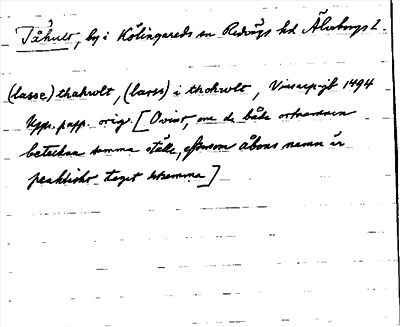 Tåhult, by i Kölingareds sn Redvägs hd Älvsborgs l.
(lasse) thahwlt, (larss) i thohwlt, Vinsarp-jb 1494
Uppr. papp. orig. [Ovisst, om de båda ortnamnen
beteckna samma ställe, eftersom åbons namn är
praktiskt taget detsamma]